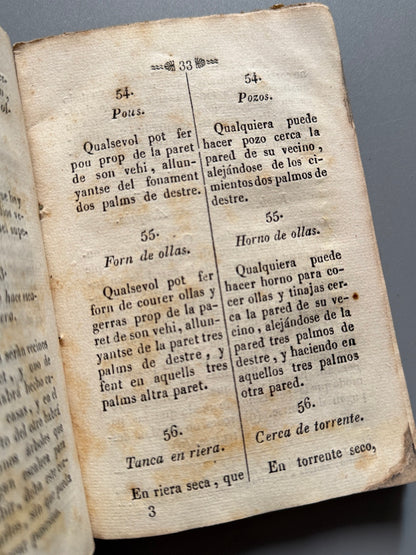 33
54.
Pous.
Qualsevol pot fer
pou prop de la paret
de son vehi, allun-
yantse del fonament
dos palms de destre.
55.
Forn de ollas.
Qualsevol pot fer
forn de courer ollas y
gerras prop de la pa-
ret de son vehi, allun-
yantse de la paret tres
palms de destre, y
fent en aquells tres
palms altra paret.
56.
Tanca en riera.
En riera seca, que
3
54.
Pozos.
Qualquiera puede
hacer pozo cerca la
pared de su vecino,
alejándose de los ci-
mientos dos palmos de
destre.
55.
Horno de ollas.
Qualquiera puede
hacer horno para co-
cer ollas y tinajas cer-
ca la pared de su ve-
cino, alejándose de la
pared tres palmos de
destre, y haciendo en
aquellos tres palmos
otra pared.
56.
Cerca de torrente.
En torrente seco,